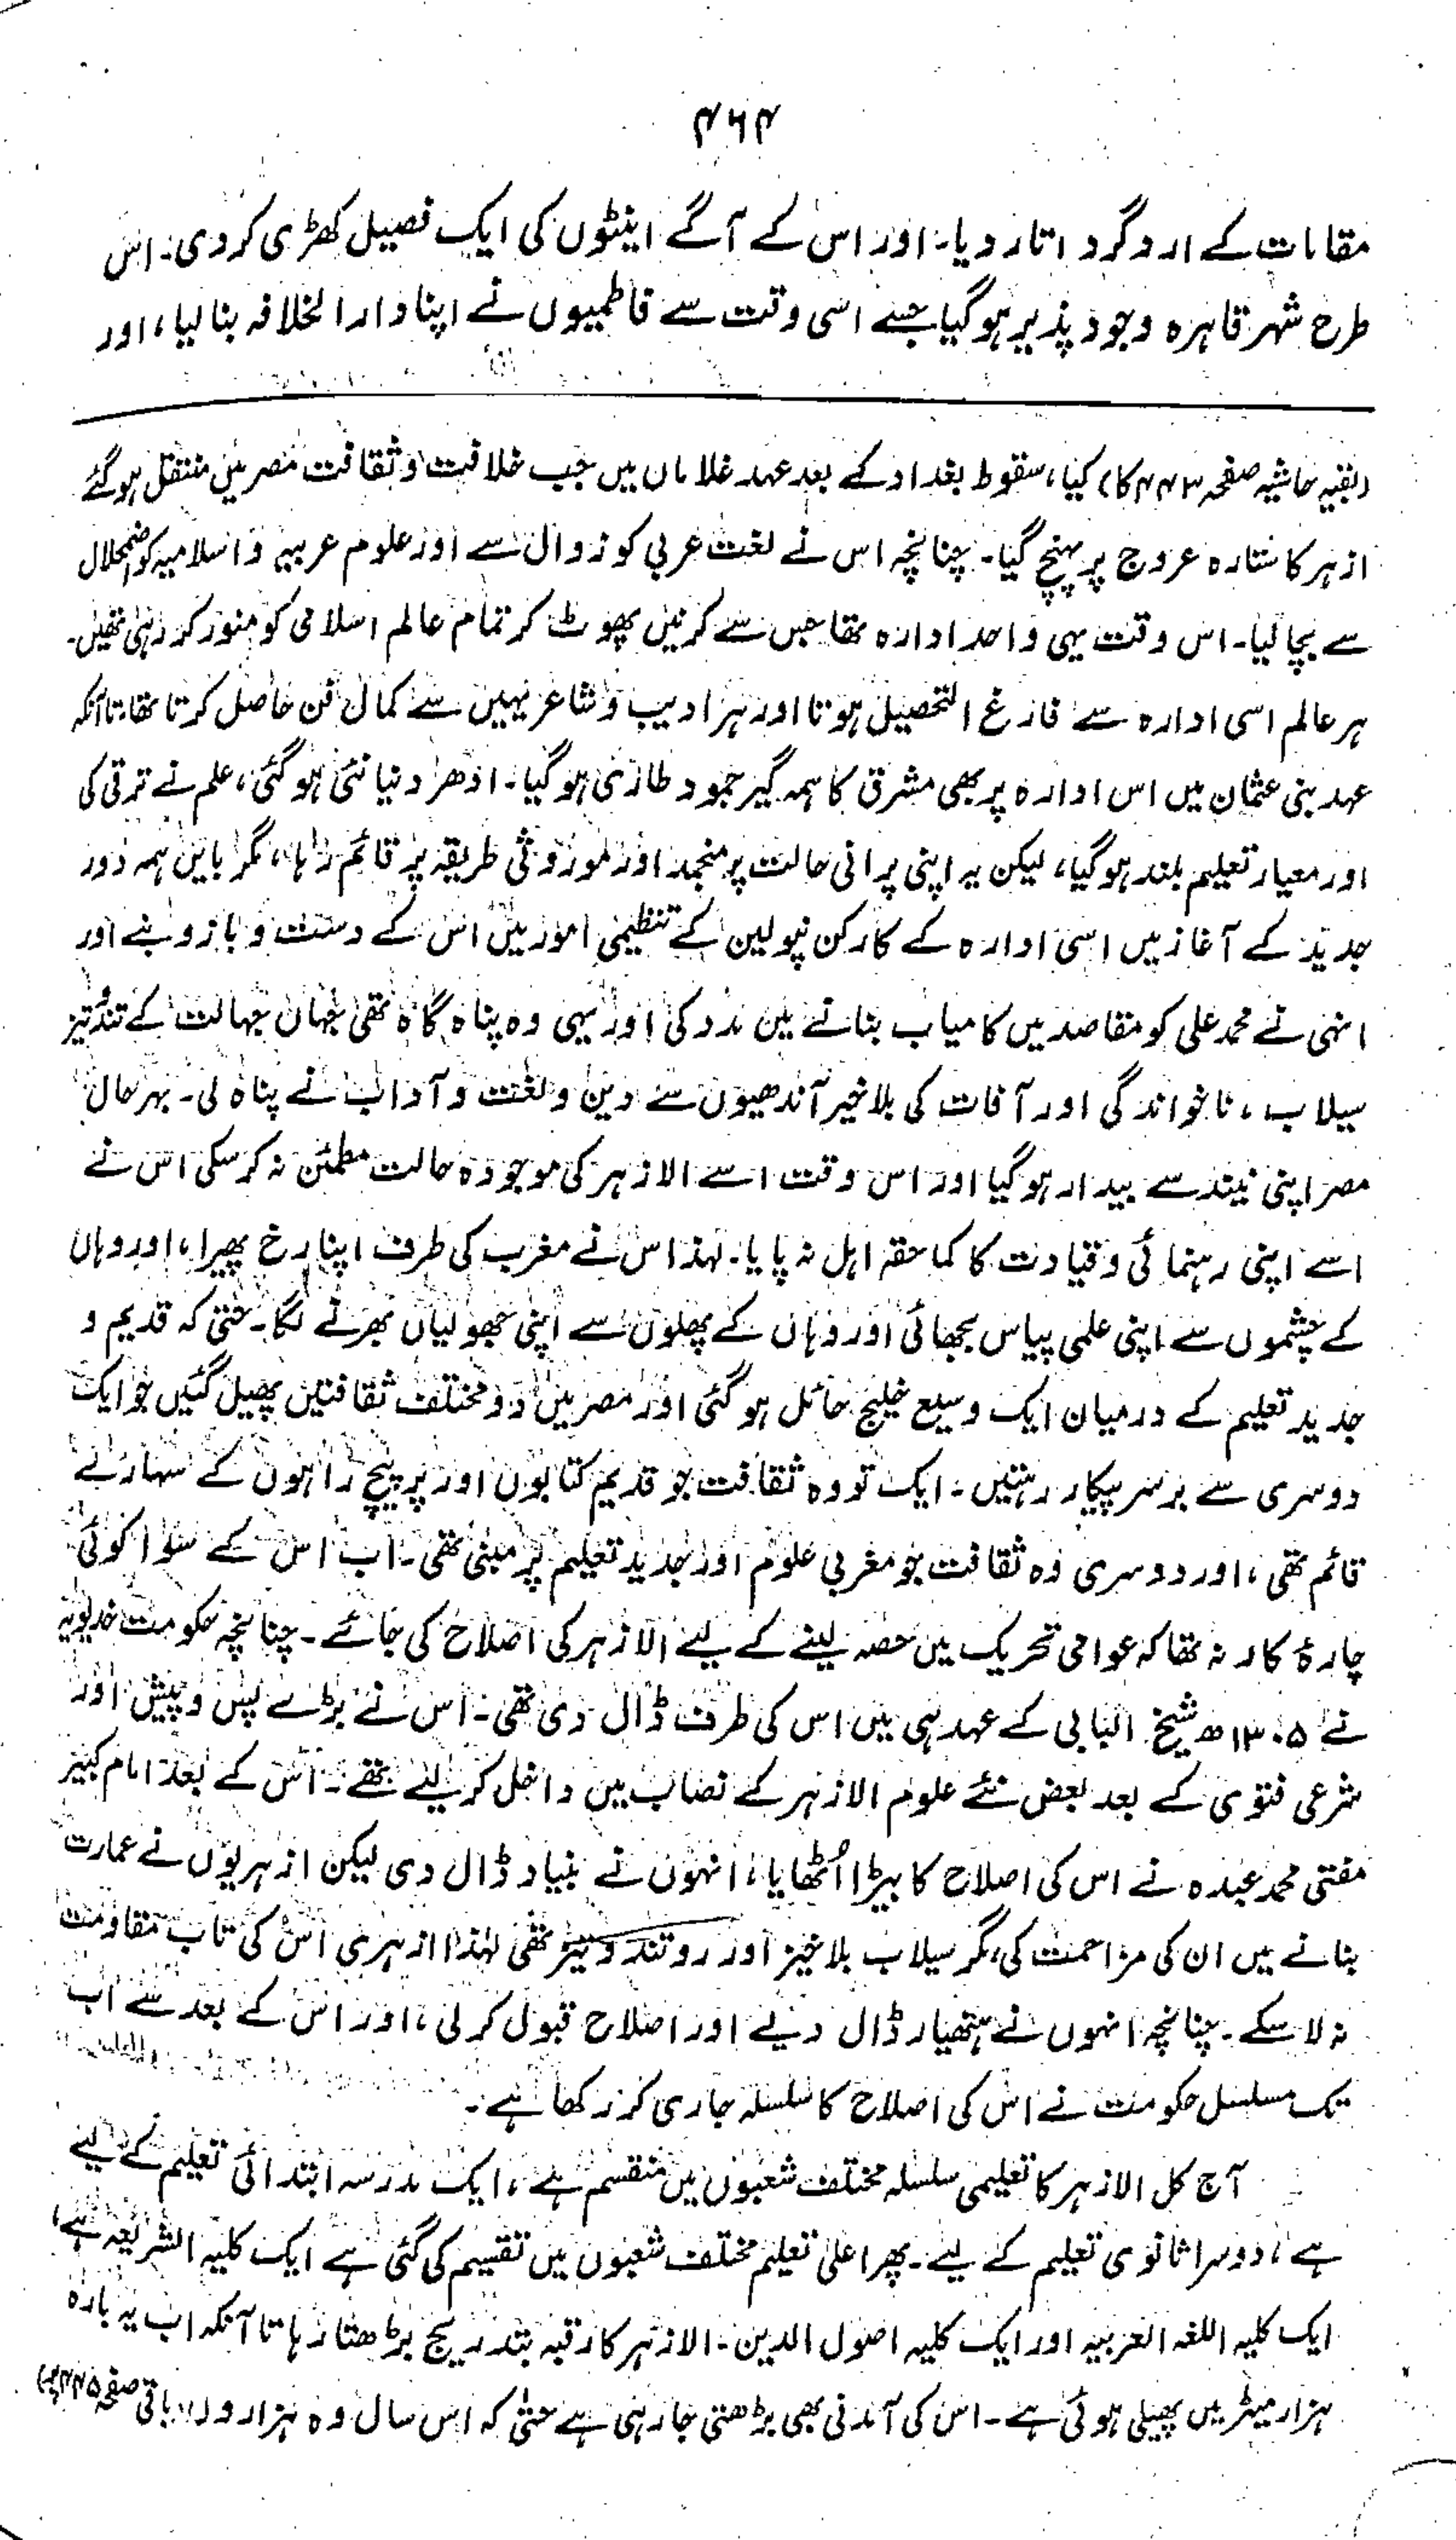 ۴۶۴
مقامات کے اردگرد اتار دیا۔ اور اس کے آگے اینٹوں کی ایک فصیل کھڑی کر دی۔ اس
طرح شہر قاہرہ وجود پذیر ہو گیا جسے اسی وقت سے فاطمیوں نے اپنا دارالخلافہ بنا لیا، اور
(بقیہ حاشیہ صفحہ ۴۴۳ کا) کیا، سقوط بغداد کے بعد عہد غلاماں میں جب خلافت و ثقافت مصر میں منتقل ہو گئے
ازہر کا ستارہ عروج پر پہنچ گیا۔ چنانچہ اس نے لغت عربی کو زوال سے اور علوم عربیہ و اسلامیہ کو اضمحلال
سے بچا لیا۔ اس وقت یہی واحد ادارہ تھا جس سے کرنیں پھوٹ کر تمام عالم اسلامی کو منور کر رہی تھیں۔
ہر عالم اسی ادارہ سے فارغ التحصیل ہوتا اور ہر ادیب و شاعر یہیں سے کمال فن حاصل کرتا تھا، تاآنکہ
عہد بنی عثمان میں اس ادارہ پر بھی مشرق کا ہمہ گیر جمود طاری ہو گیا۔ ادھر دنیا نئی ہو گئی، علم نے ترقی کی
اور معیار تعلیم بلند ہو گیا، لیکن یہ اپنی پرانی حالت پر منجمد اور موروثی طریقہ پر قائم رہا، مگر بایں ہمہ دور
جدید کے آغاز میں اسی ادارہ کے کارکن نپولین کے تنظیمی امور میں اس کے دست و بازو بنے اور
انہی نے محمد علی کو مقاصد میں کامیاب بنانے میں مدد کی اور یہی وہ پناہ گاہ تھی جہاں جہالت کے تند و تیز
سیلاب، ناخواندگی اور آفات کی بلاخیز آندھیوں سے دین و لغت و آداب نے پناہ لی۔ بہرحال
مصر اپنی نیند سے بیدار ہو گیا اور اس وقت اسے الازہر کی موجودہ حالت مطمئن نہ کر سکی اس نے
اسے اپنی رہنمائی و قیادت کا کما حقہ اہل نہ پایا۔ لہذا اس نے مغرب کی طرف اپنا رخ پھیرا، اور وہاں
کے چشموں سے اپنی علمی پیاس بجھائی اور وہاں کے پھلوں سے اپنی جھولیاں بھرنے لگا۔ حتی کہ قدیم و
جدید تعلیم کے درمیان ایک وسیع خلیج حائل ہو گئی اور مصر میں دو مختلف ثقافتیں پھیل گئیں جو ایک
دوسری سے برسرپیکار رہتیں۔ ایک تو وہ ثقافت جو قدیم کتابوں اور پرپیچ راہوں کے سہارے
قائم تھی، اور دوسری وہ ثقافت جو مغربی علوم اور جدید تعلیم پر مبنی تھی۔ اب اس کے سوا کوئی
چارۂ کار نہ تھا کہ عوامی تحریک میں حصہ لینے کے لیے الازہر کی اصلاح کی جائے۔ چنانچہ حکومت خدیویہ
نے ۱۳۰۵ھ شیخ البابی کے عہد ہی میں اس کی طرف ڈال دی تھی۔ اس نے بڑے پس و پیش اور
شرعی فتوی کے بعد بعض نئے علوم الازہر کے نصاب میں داخل کر لیے تھے۔ اس کے بعد امام کبیر
مفتی محمد عبدہ نے اس کی اصلاح کا بیڑا اُٹھایا، انہوں نے بنیاد ڈال دی لیکن ازہریوں نے عمارت
بنانے میں ان کی مزاحمت کی، مگر سیلاب بلاخیز اور رو تند و تیز تھی لہٰذا ازہری اس کی تاب مقاومت
نہ لا سکے۔ چنانچہ انہوں نے ہتھیار ڈال دیے اور اصلاح قبول کر لی، اور اس کے بعد سے اب
تک مسلسل حکومت نے اس کی اصلاح کا سلسلہ جاری کر رکھا ہے۔
آج کل الازہر کا تعلیمی سلسلہ مختلف شعبوں میں منقسم ہے، ایک مدرسہ ابتدائی تعلیم کے لیے
ہے، دوسرا ثانوی تعلیم کے لیے۔ پھر اعلیٰ تعلیم مختلف شعبوں میں تقسیم کی گئی ہے ایک کلیہ الشریعہ ہے،
ایک کلیہ اللغہ العربیہ اور ایک کلیہ اصول الدین۔ الازہر کا رقبہ بتدریج بڑھتا رہا تا آنکہ اب یہ بارہ
ہزار میٹر میں پھیلی ہوئی ہے۔ اس کی آمدنی بھی بڑھتی جا رہی ہے حتیٰ کہ اس سال وہ ہزاروں (باقی صفحہ ۴۴۵ پر)